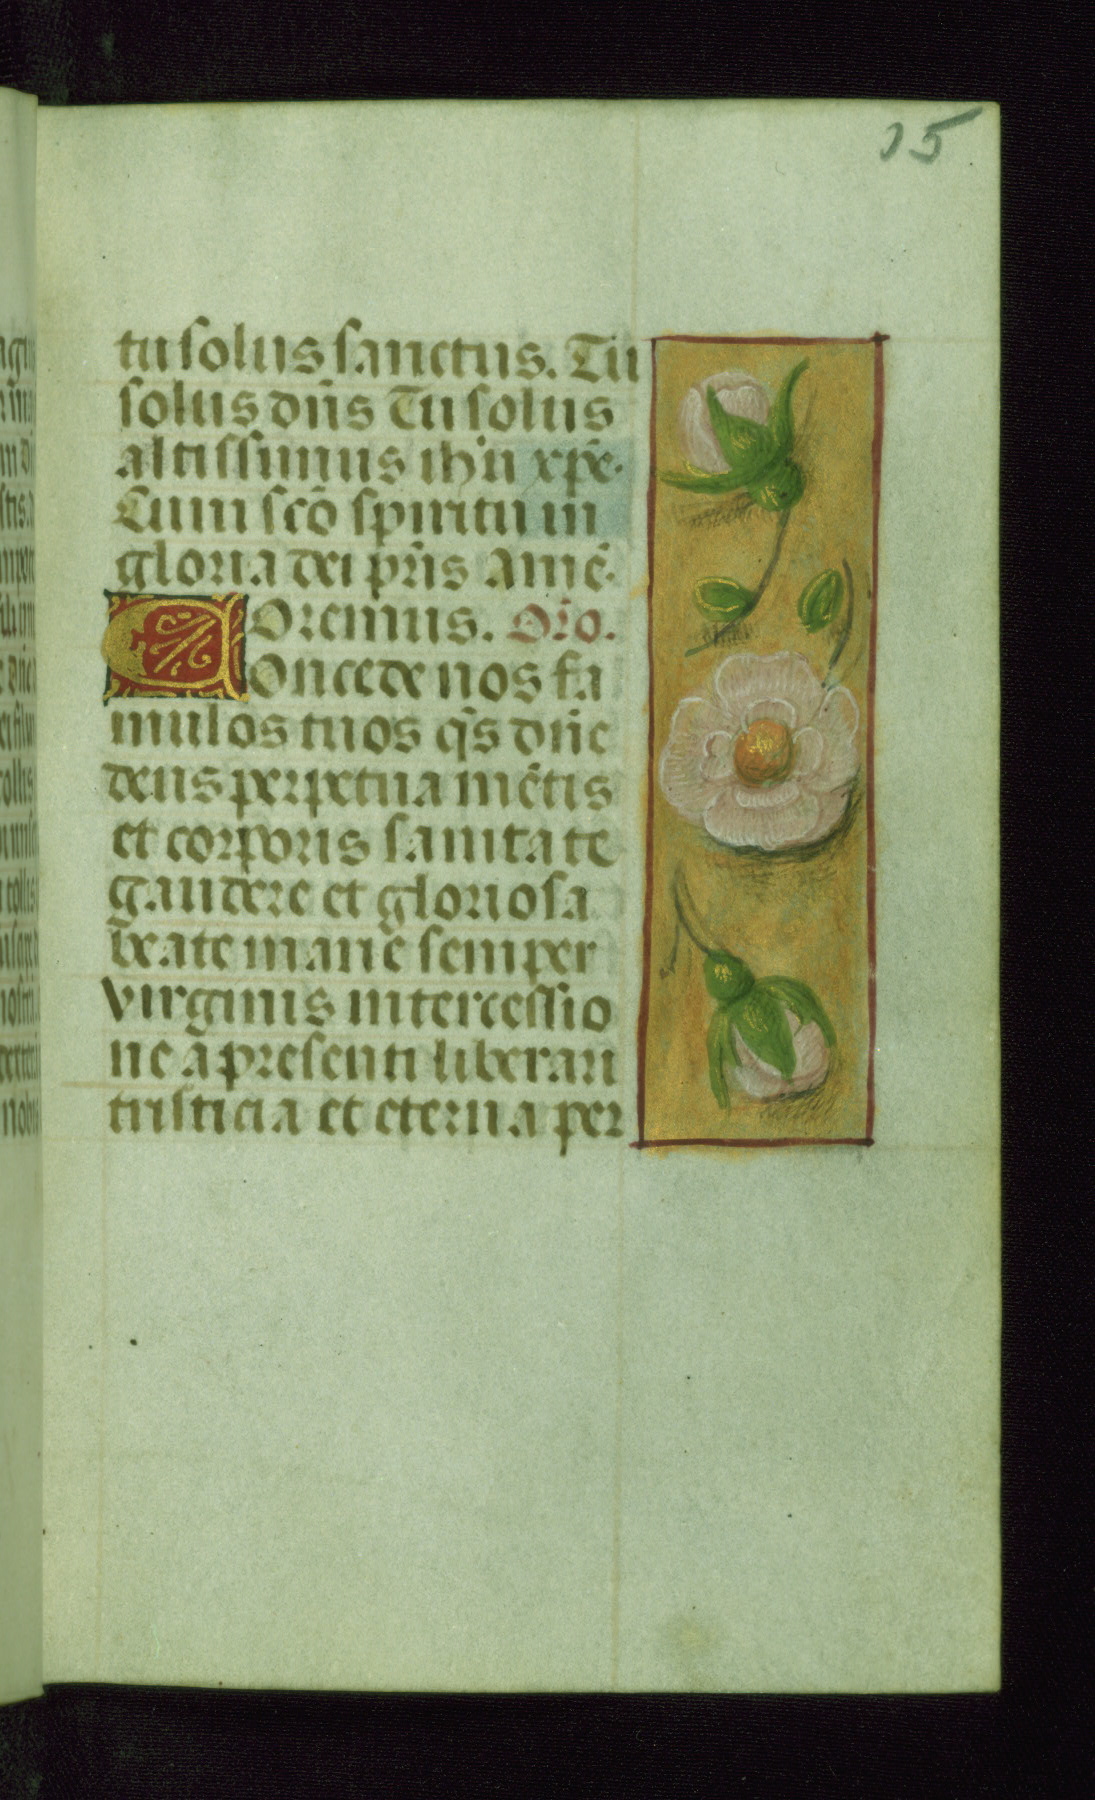 15
tu solus sanctus. Tu
solus dn̄s Tu solus
altissimus ih'u xp̄e.
Cum sc̄o spiritu in
gloria dei pr̄is Amē.
Oremus. Or̄o.
Concede nos fa
mulos tuos q̄s dn̄e
deus perpetua mētis
et corporis sanitate
gaudere et gloriosa
beate marie semper
virginis intercessio
ne a presenti liberari
tristicia et eterna per